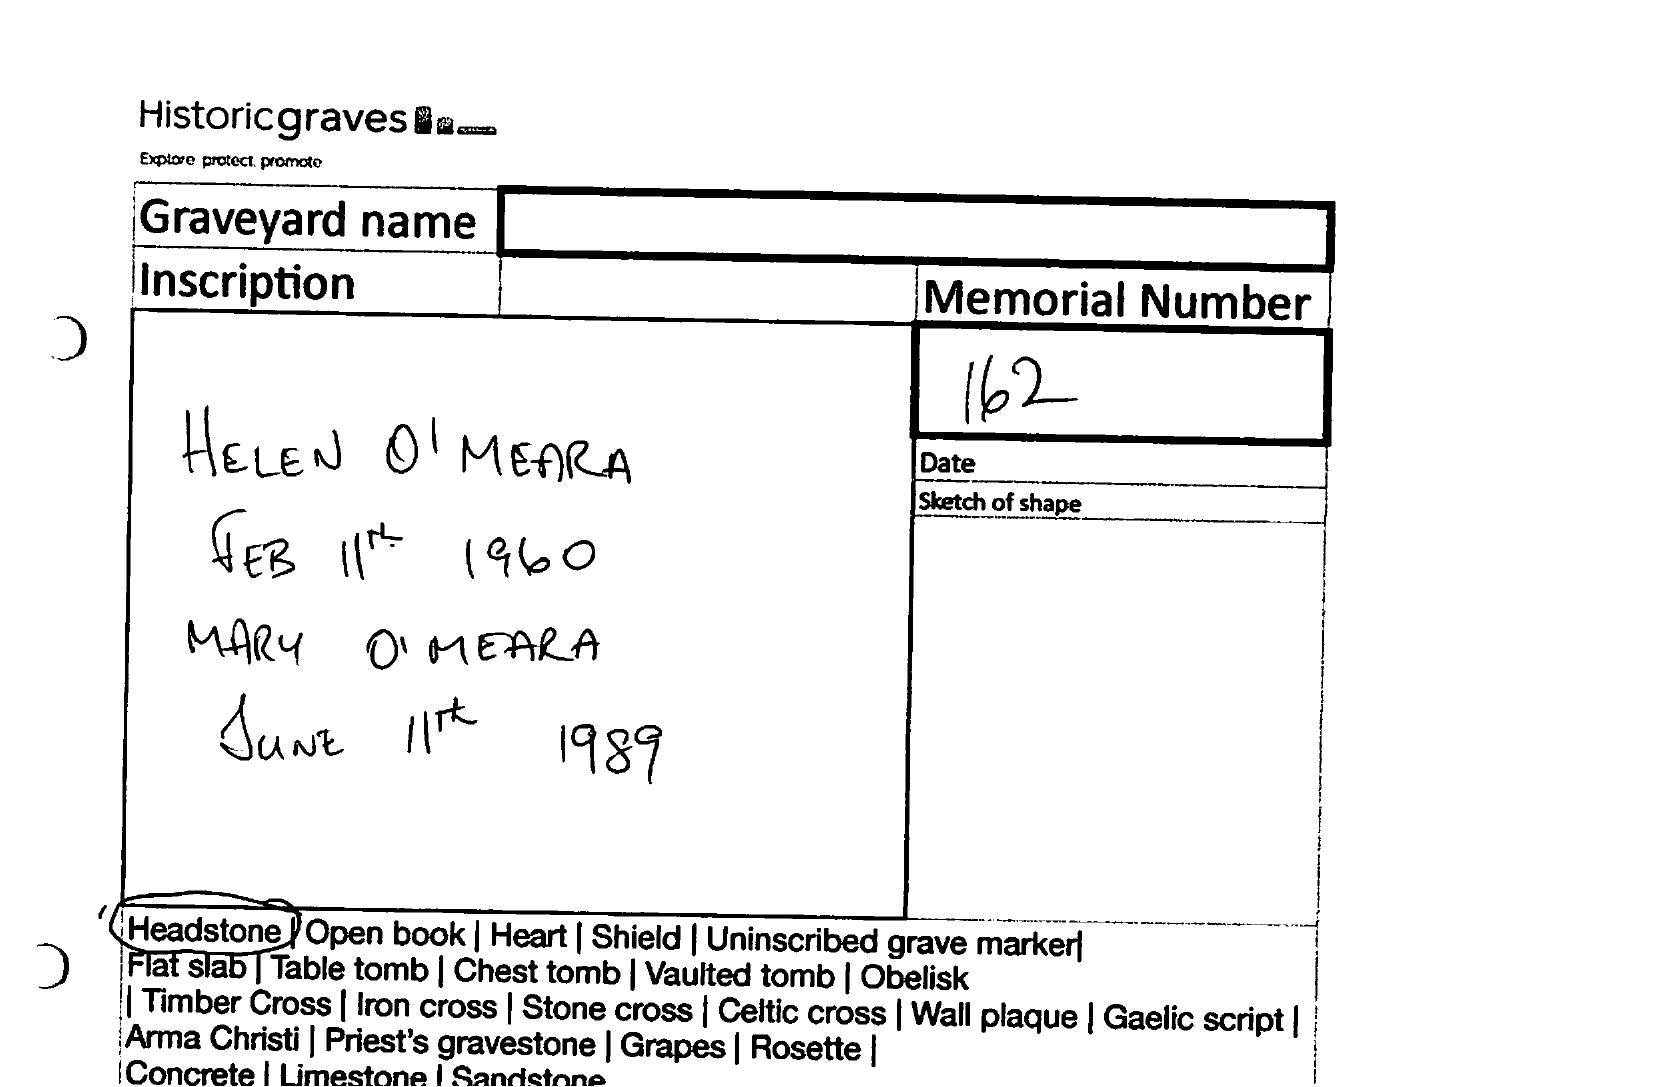 Historicgraves
Explore protect promote
Graveyard name
Inscription
Memorial Number
162
HELEN O'MEARA
FEB 11th 1960
MARY O'MEARA
JUNE 11th 1989
Date
Sketch of shape
Headstone | Open book | Heart | Shield | Uninscribed grave marker|
Flat slab | Table tomb | Chest tomb | Vaulted tomb | Obelisk
| Timber Cross | Iron cross | Stone cross | Celtic cross | Wall plaque | Gaelic script |
Arma Christi | Priest's gravestone | Grapes | Rosette |
Concrete | Limestone | Sandstone